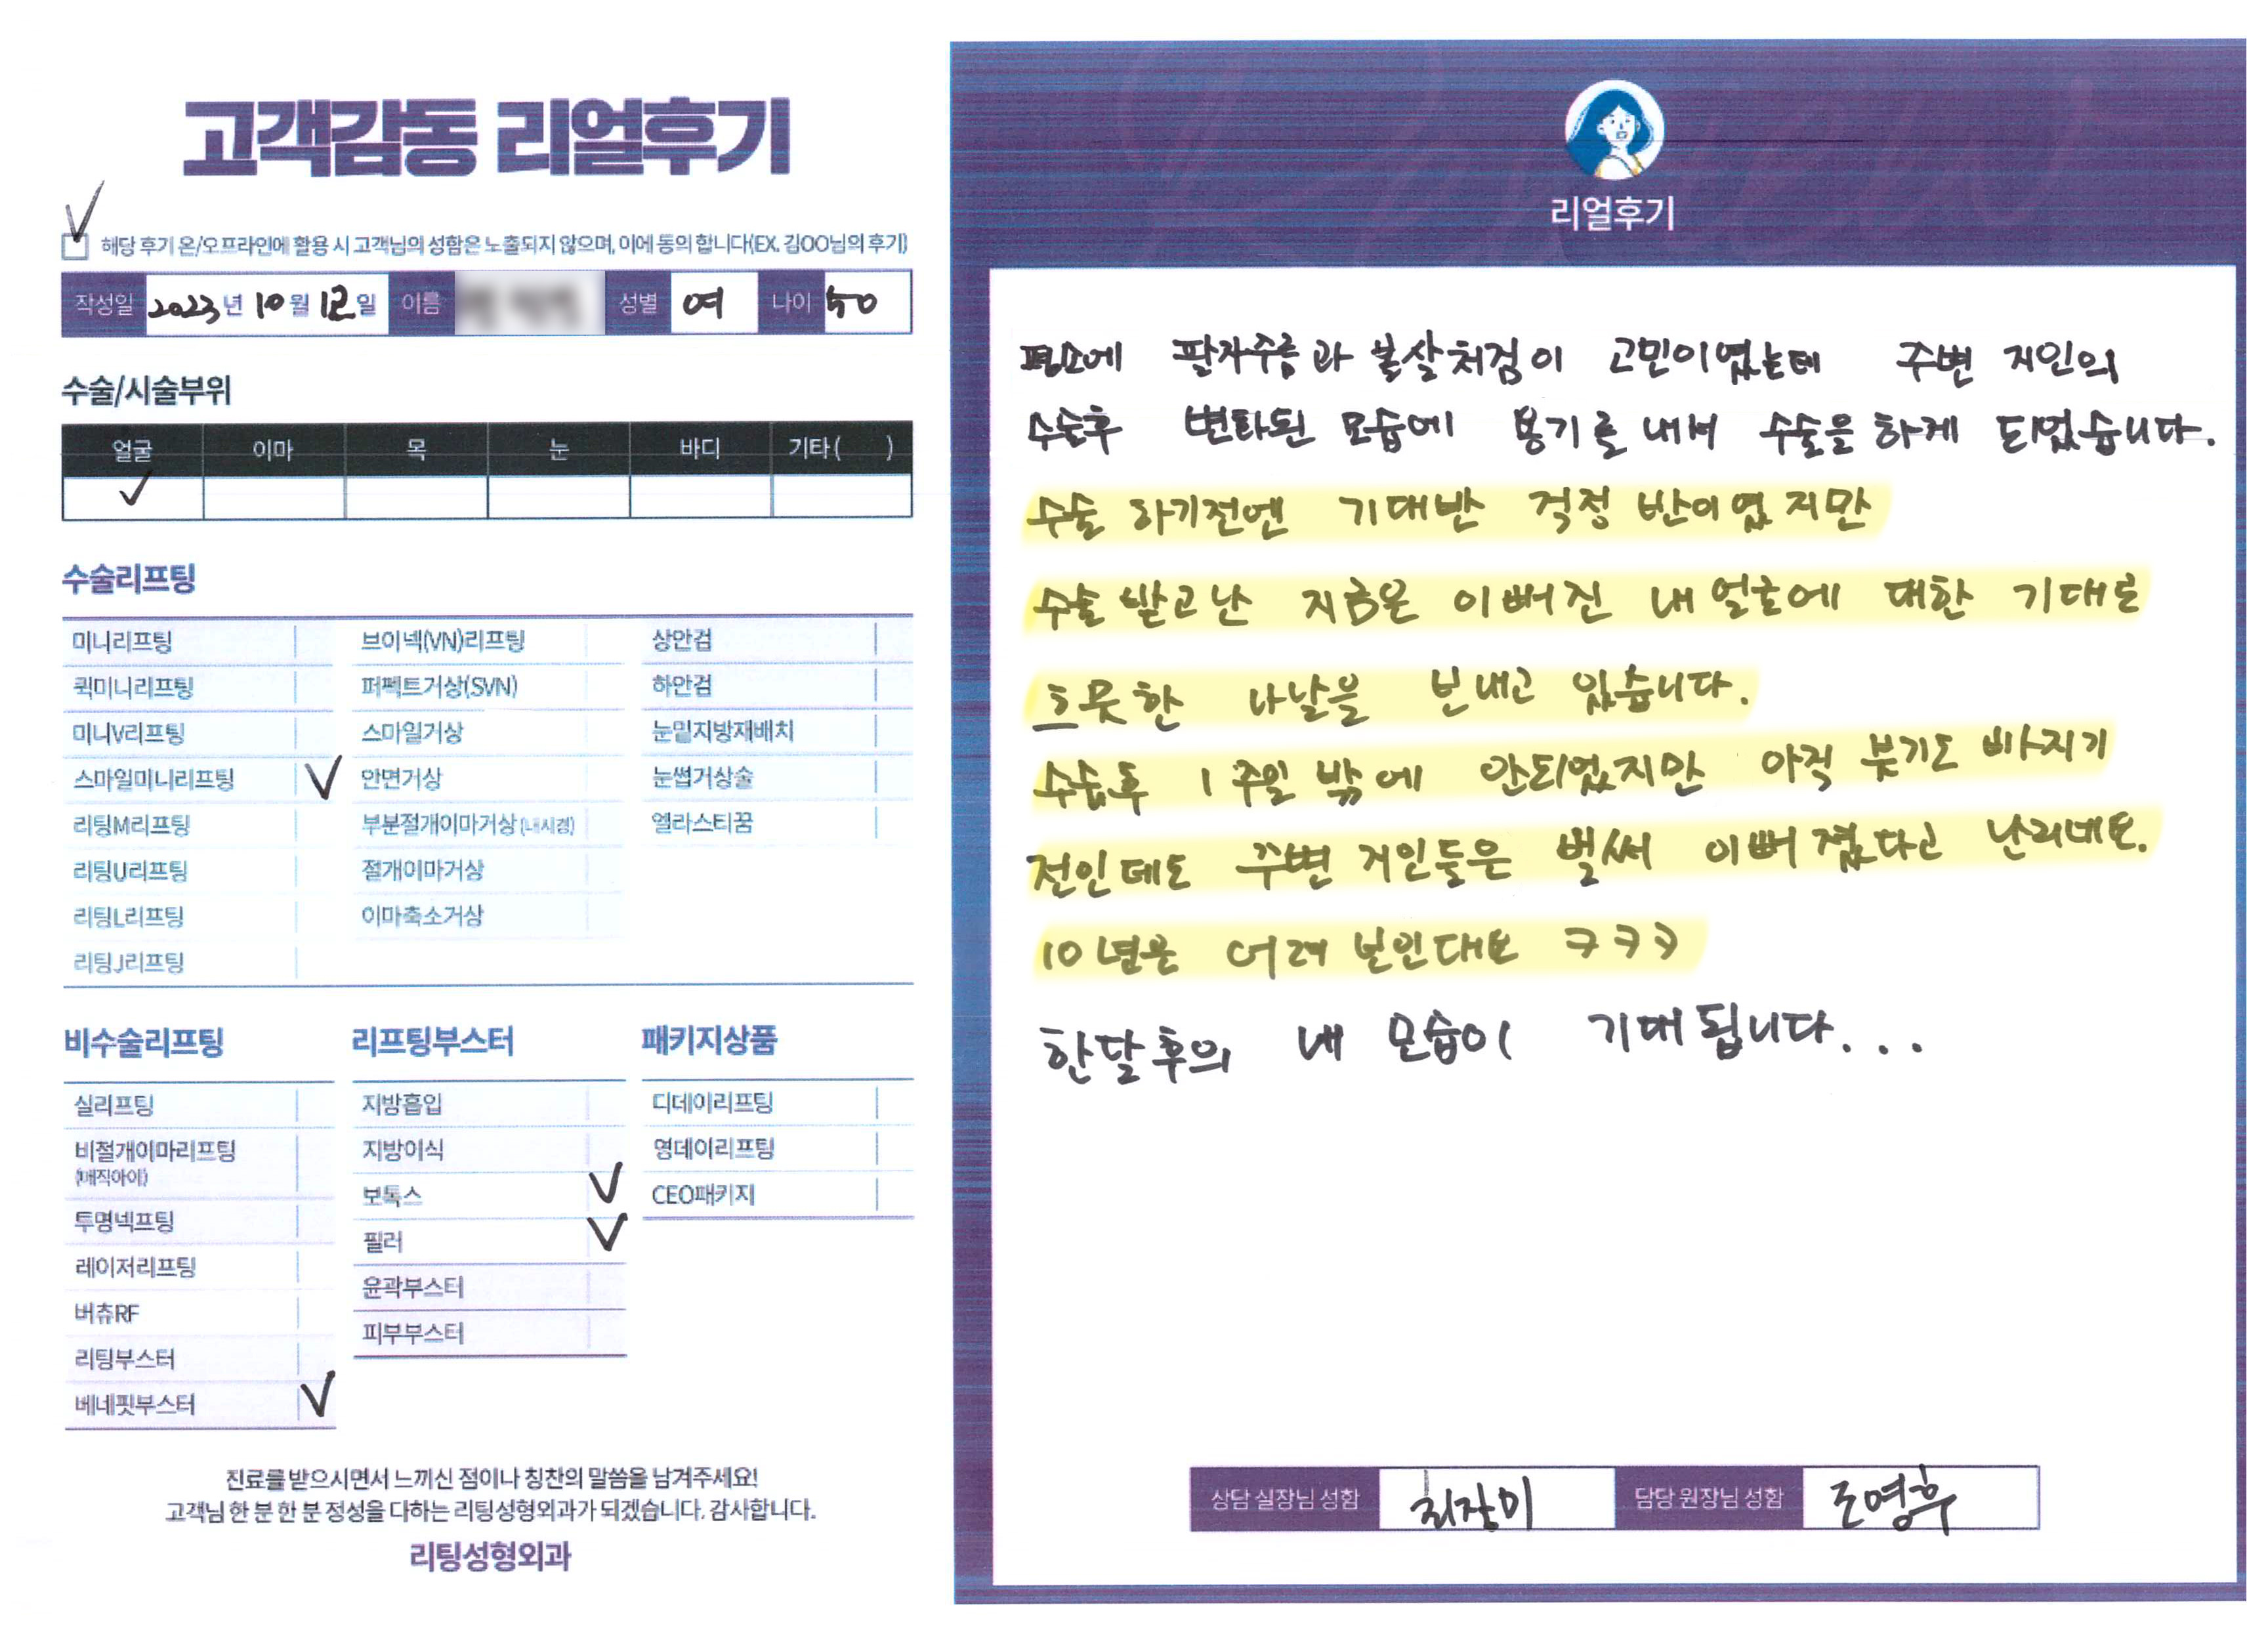 고객감동 리얼후기
해당 후기 온/오프라인에 활용 시 고객님의 성함은 노출되지 않으며, 이에 동의 합니다(EX. 김OO님의 후기)
작성일 2023년 10월 12일 이름 성별 여 나이 50
수술/시술부위
얼굴 이마 목 눈 바디 기타( )
수술리프팅
미니리프팅 브이넥(VN)리프팅 상안검
퀵미니리프팅 퍼펙트거상(SVN) 하안검
미니V리프팅 스마일거상 눈밑지방재배치
스마일미니리프팅 안면거상 눈썹거상술
리팅M리프팅 부분절개이마거상(내시경) 엘라스티꿈
리팅U리프팅 절개이마거상
리팅L리프팅 이마축소거상
리팅J리프팅
비수술리프팅 리프팅부스터 패키지상품
실리프팅 지방흡입 디데이리프팅
비절개이마리프팅 지방이식 영데이리프팅
(매직아이)
보톡스 CEO패키지
투명넥프팅 필러
레이저리프팅 윤곽부스터
버츄RF 피부부스터
리팅부스터
베네핏부스터
진료를 받으시면서 느끼신 점이나 칭찬의 말씀을 남겨주세요!
고객님 한 분 한 분 정성을 다하는 리팅성형외과가 되겠습니다. 감사합니다.
리팅성형외과
리얼후기
평소에 팔자주름과 볼살처짐이 고민이였는데 주변 지인의
수술후 변화된 모습에 용기를 내서 수술을 하게 되었습니다.
수술 하기전엔 기대반 걱정 반이였지만
수술 받고 난 지금은 이뻐진 내 얼굴에 대한 기대로
흐뭇한 나날을 보내고 있습니다.
수술후 1주일 밖에 안되었지만 아직 붓기도 빠지기
전인데도 주변 지인들은 벌써 이뻐졌다고 난리네요.
10년은 어려 보인대요 ㅋㅋㅋ
한달 후의 내 모습이 기대됩니다...
상담 실장님 성함 최장미 담당 원장님 성함 조영후